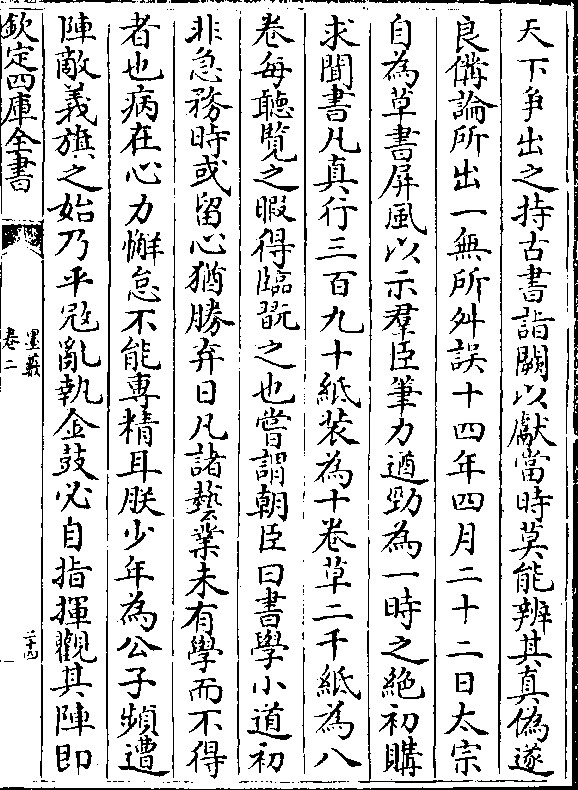 天下爭出之持古書詣闕以獻當時莫能辨其真偽遂
良備論所出一無所舛誤十四年四月二十二日太宗
自為草書屏風以示羣臣筆力遒勁為一時之絶初購
求閒書凡真行三百九十紙装為十卷草二千紙為八
卷每聽覽之暇得臨翫之也嘗謂朝臣曰書學小道初
非急務時或留心猶勝弃日凡諸藝業未有學而不得
者也病在心力懈怠不能專精耳朕少年為公子頻遭
陣敵義旗之始乃平寇亂執金鼓必自指揮觀其陣即
欽定四庫全書
墨藪
卷二
二十四